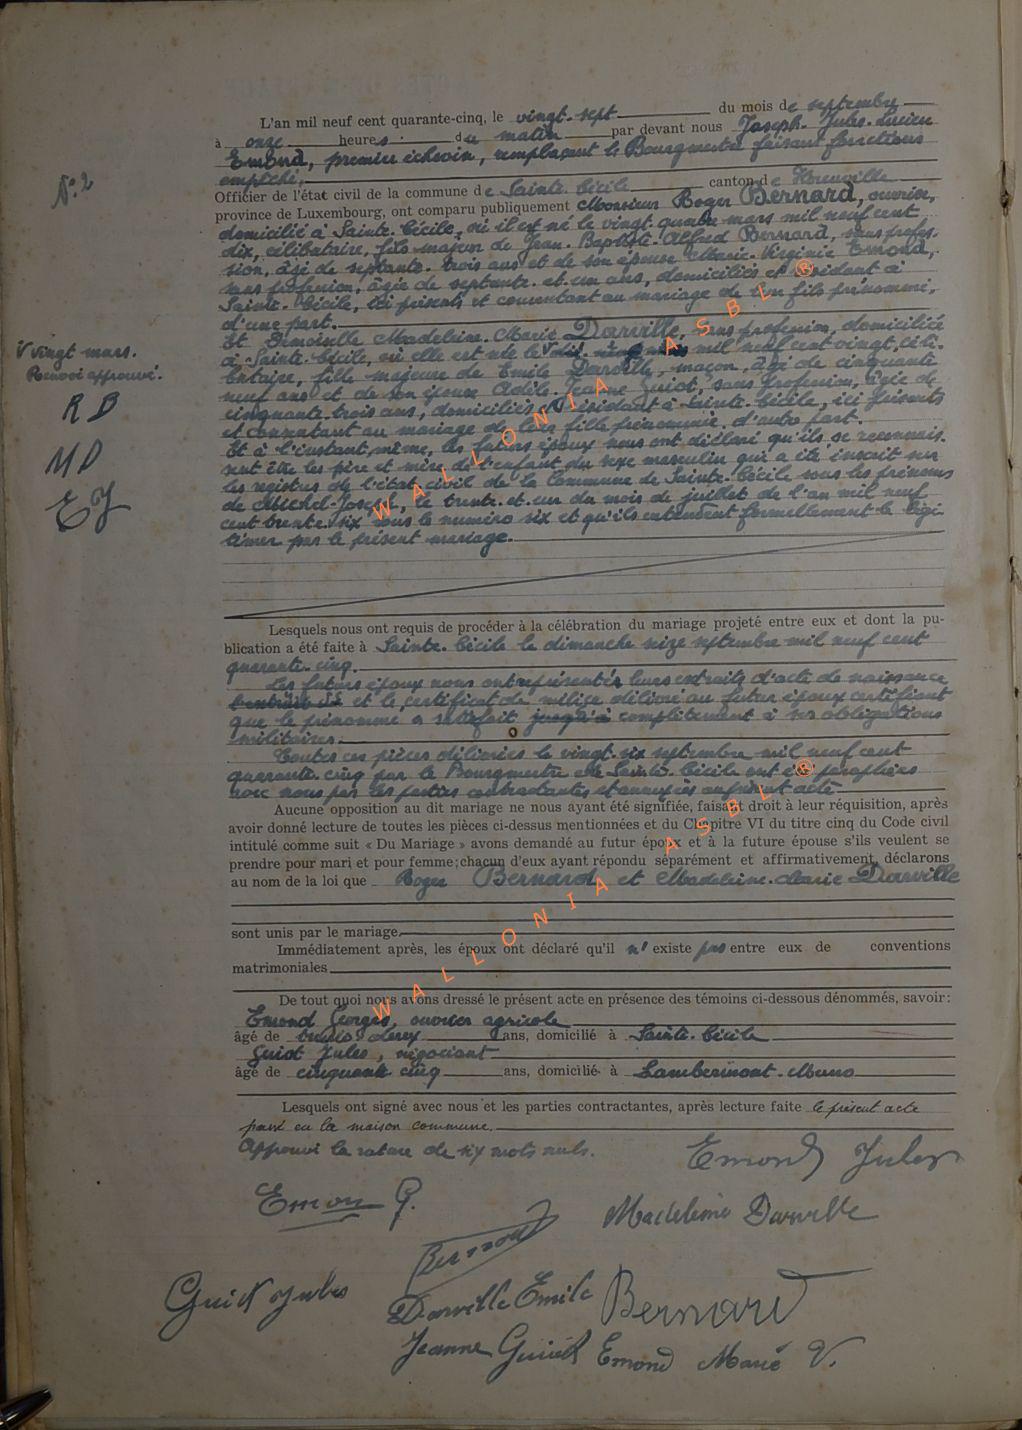 L'an mil neuf cent quarante-cinq, le vingt-sept du mois de septembre
à onze heures du matin par devant nous Joseph-Jules-Lucien
Emond, premier échevin, remplaçant le Bourgmestre faisant fonctions
empêché,
Officier de l'état civil de la commune de Sainte-Cécile canton de Florenville
province de Luxembourg, ont comparu publiquement Monsieur Roger Bernard, ouvrier,
domicilié à Sainte-Cécile, où il est né le vingt-quatre mars mil neuf cent
dix, célibataire, fils majeur de Jean-Baptiste-Alfred Bernard, sans profes-
sion, âgé de septante-trois ans et de son épouse Marie-Virginie Emond,
sans profession, âgée de septante-et-un ans, domiciliés et résidant à
Sainte-Cécile, ici présents et consentant au mariage de leur fils prénommé,
d'une part.
Et Demoiselle Madeleine-Marie Darville, sans profession, domiciliée
à Sainte-Cécile, où elle est née le V mil neuf cent vingt, céli-
bataire, fille majeure de Emile Darville, maçon, âgé de cinquante
neuf ans et de son épouse Adèle-Jeanne Guiot, sans profession, âgée de
cinquante trois ans, domiciliés et résidant à Sainte-Cécile, ici présents
et consentant au mariage de leur fille prénommée, d'autre part.
Et à l'instant même, les futurs époux nous ont déclaré qu'ils se reconnais-
sent être les père et mère de l'enfant du sexe masculin qui a été inscrit sur
les registres de l'état civil de la Commune de Sainte-Cécile sous les prénoms
de Michel-Joseph, le trente-et-un du mois de juillet de l'an mil neuf
cent trente-six sous le numéro six et qu'ils entendent formellement le légi-
timer par le présent mariage.
N° 2
V vingt mars.
Renvoi approuvé.
R B
M D
E J
Lesquels nous ont requis de procéder à la célébration du mariage projeté entre eux et dont la pu-
blication a été faite à Sainte-Cécile le dimanche seize septembre mil neuf cent
quarante-cinq.
Les futurs époux nous ont représentés leurs extraits d'acte de naissance
et le certificat de milice délivré au futur époux certifiant
que le prénommé a satisfait jusqu'à complètement à ses obligations
militaires.
Toutes ces pièces délivrées le vingt-six septembre mil neuf cent
quarante-cinq par le Bourgmestre de Sainte-Cécile ont été paraphées
avec nous par les parties contractantes et annexées au présent acte
Aucune opposition au dit mariage ne nous ayant été signifiée, faisant droit à leur réquisition, après
avoir donné lecture de toutes les pièces ci-dessus mentionnées et du Chapitre VI du titre cinq du Code civil
intitulé comme suit « Du Mariage » avons demandé au futur époux et à la future épouse s'ils veulent se
prendre pour mari et pour femme; chacun d'eux ayant répondu séparément et affirmativement, déclarons
au nom de la loi que Roger Bernard et Madeleine-Marie Darville
sont unis par le mariage.
Immédiatement après, les époux ont déclaré qu'il n' existe pas entre eux de conventions
matrimoniales
De tout quoi nous avons dressé le présent acte en présence des témoins ci-dessous dénommés, savoir:
Emond Georges, ouvrier agricole
âgé de ans, domicilié à Sainte-Cécile
Guiot Jules, négociant
âgé de cinquante cinq ans, domicilié à Lambermont-Muno
Lesquels ont signé avec nous et les parties contractantes, après lecture faite le présent acte
passé en la maison commune.
Approuvé la rature de six mots nuls.
Emond Jules
Emon G.
Madeleine Darville
Bernard
Guiot Jules
Darville Emile
Bernard
Jeanne Guiot
Emond Marie V.
WALLONIA ASBL ®
WALLONIA ASBL ®